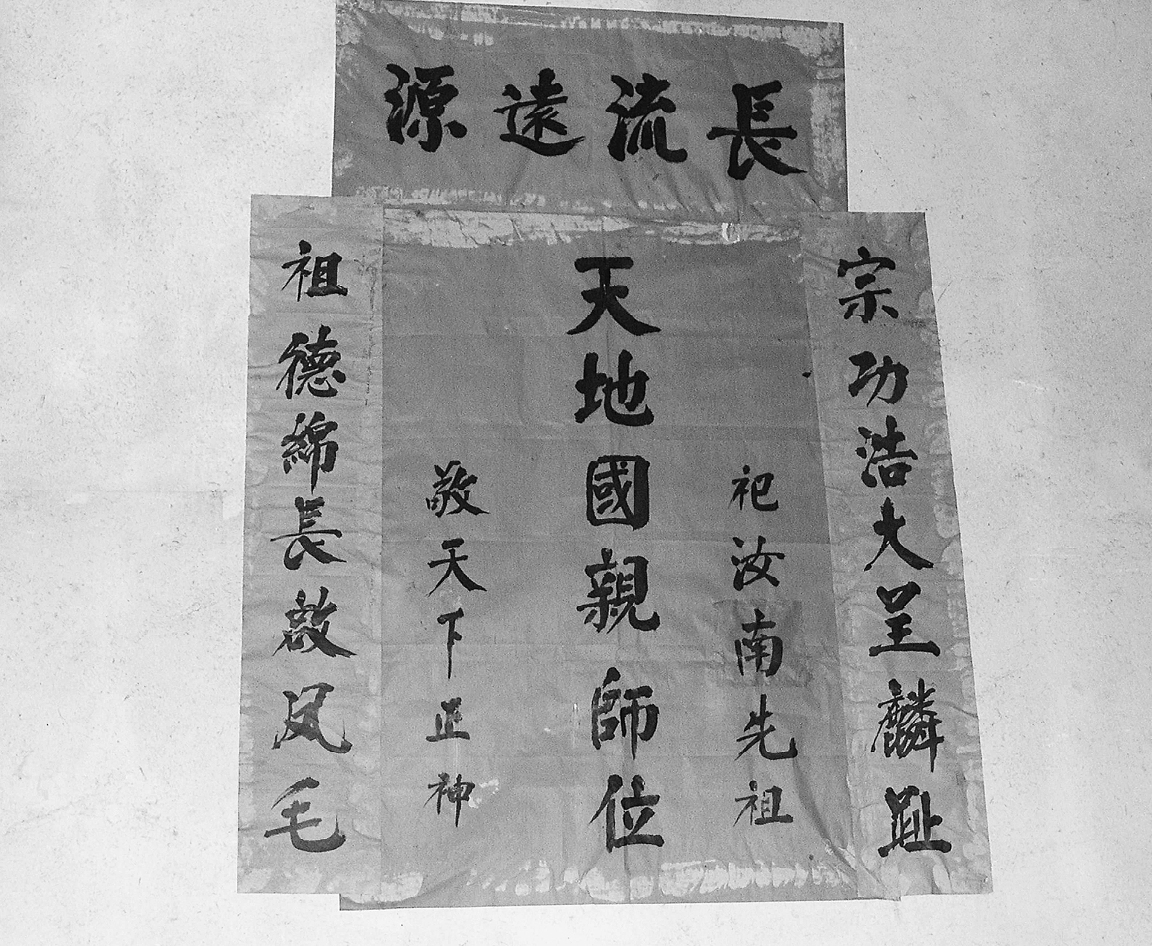 源遠流長
宗功浩大呈麟趾
祀汝南先祖
天地國親師位
敬天下正神
祖德綿長啟凤毛